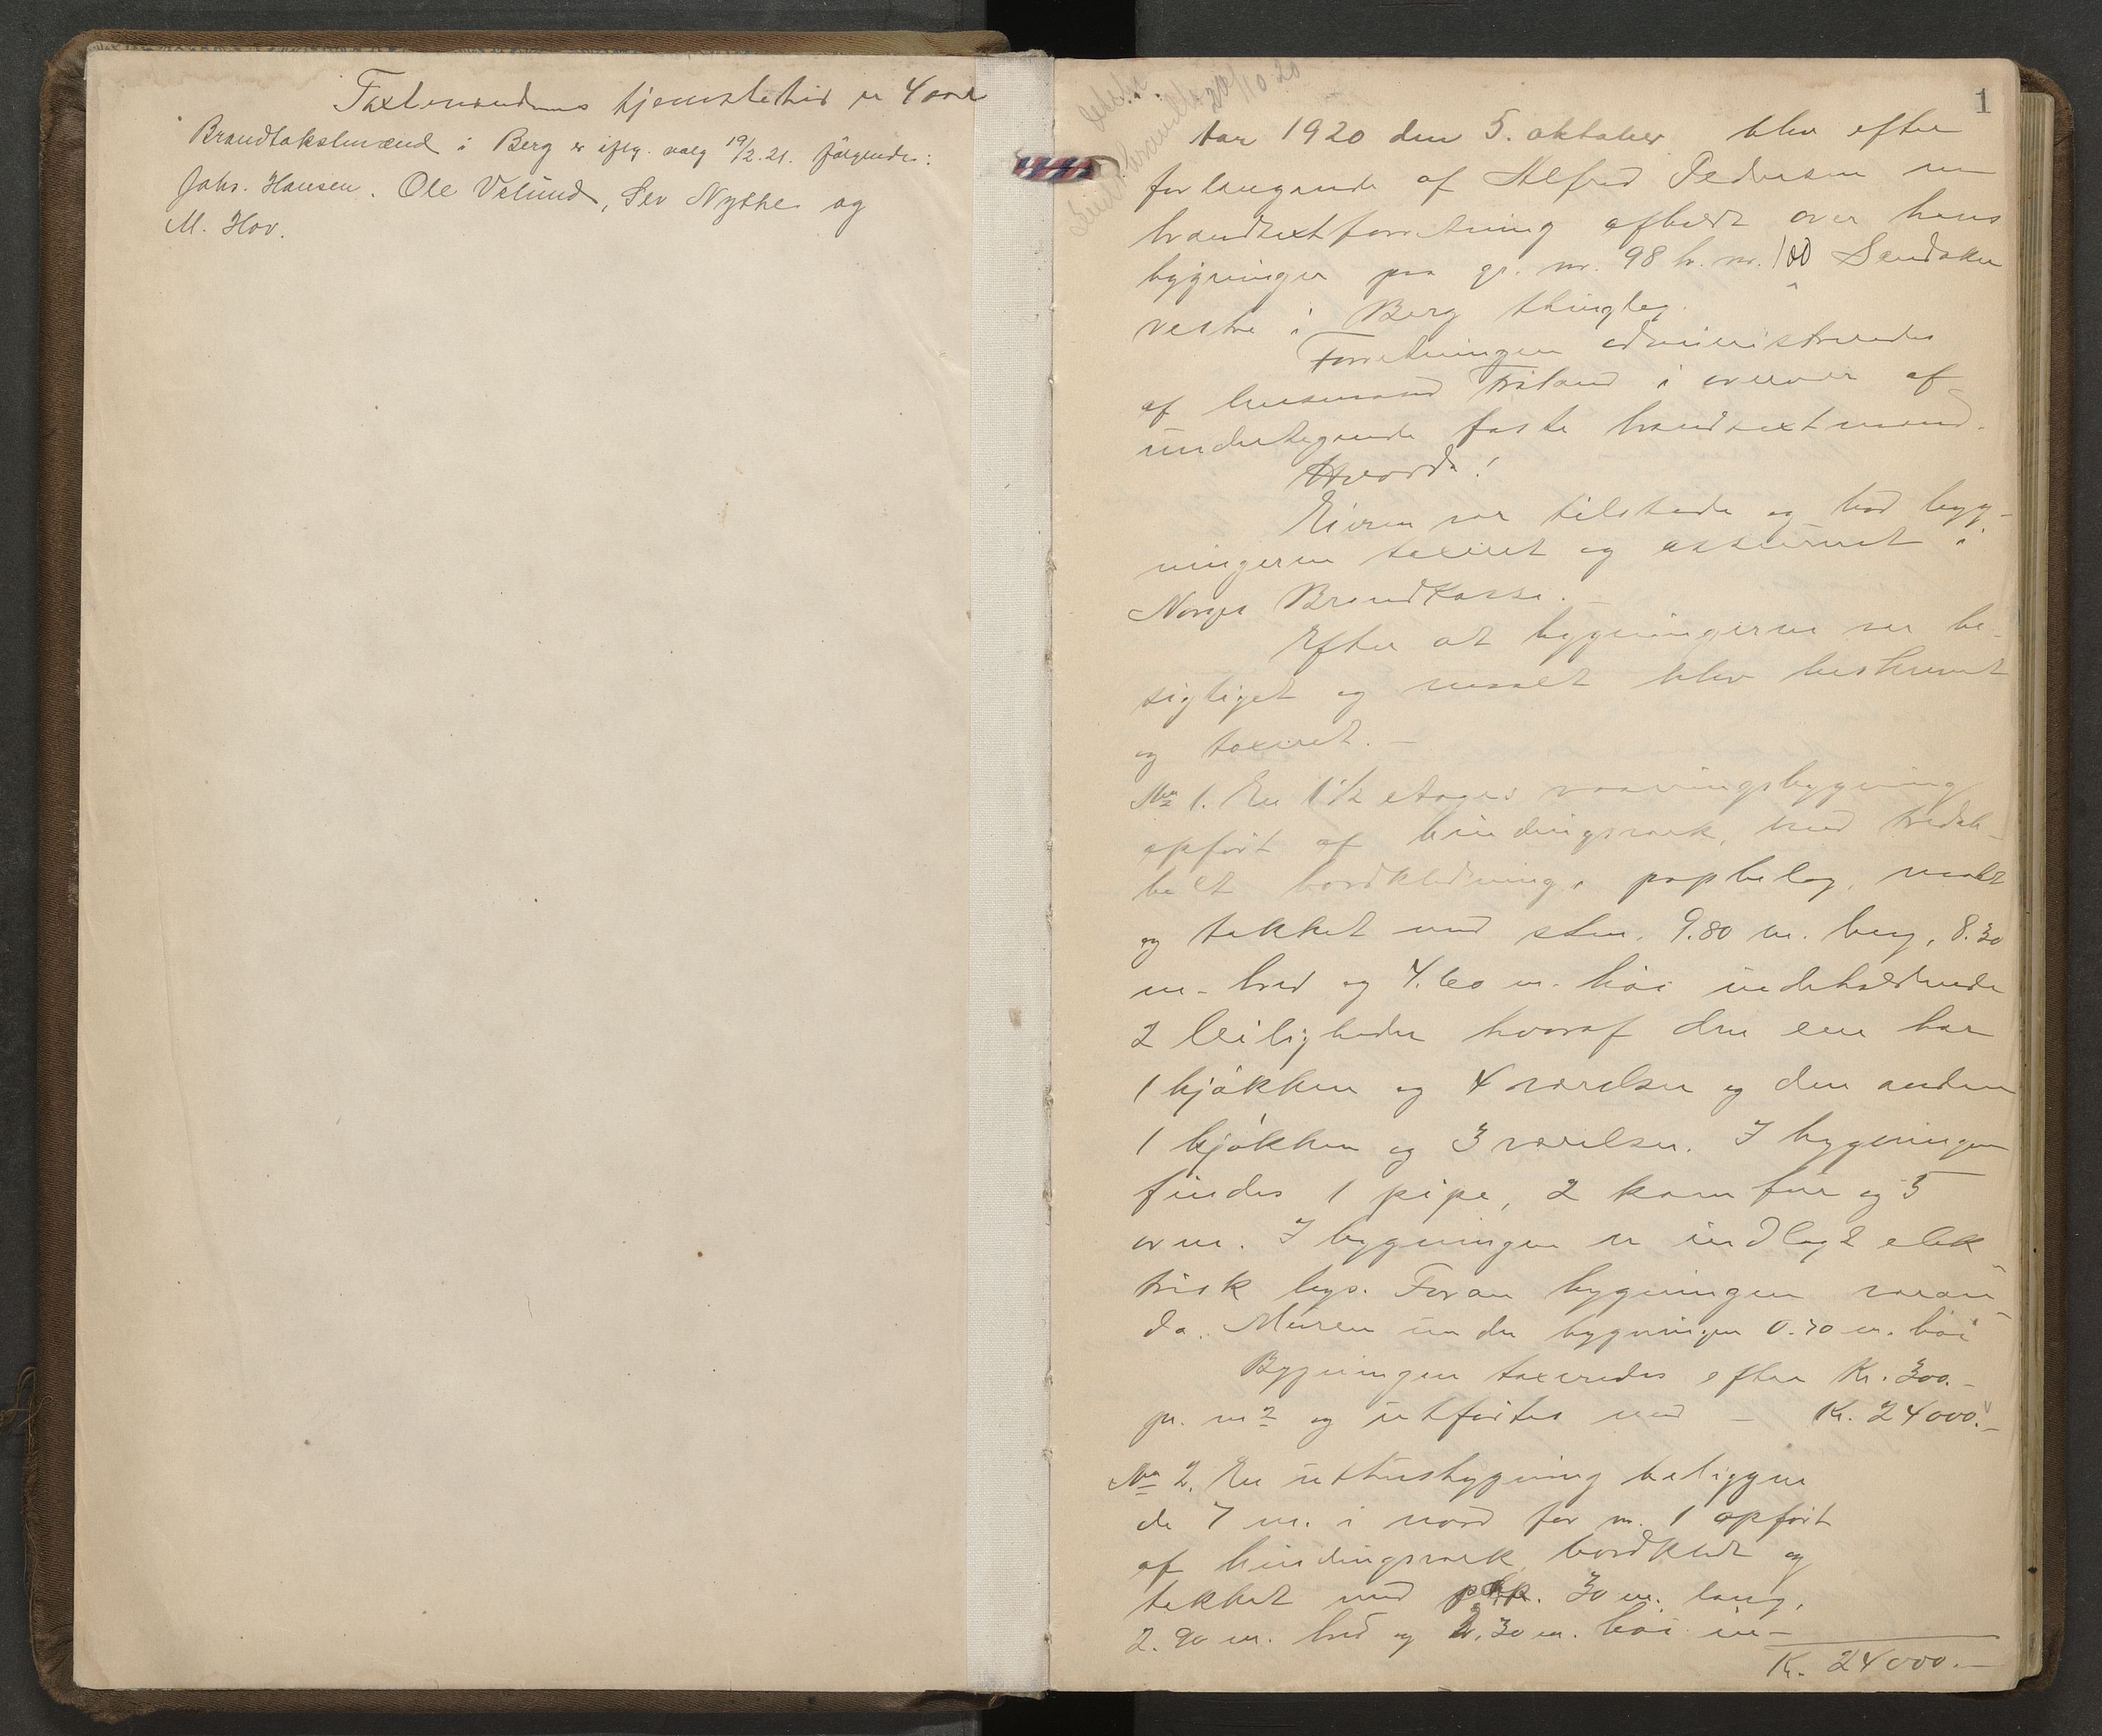 Taxtmændenes tjenestetid er 4 aar
Brandtakstmænd i Berg er iflg. valg 19/2.21. følgende:
Johs. Hansen. Ole Velund, Sev Nythe og
M. Hov.
1
20/10 20
Aar 1920 den 5. oktober blev efter
forlangende af Alfred Pedersen en
brandtaxtforretning afholdt over hans
bygninger paa gr. nr. 98 br. nr. 100 Sandaker
vestre i Berg thinglag.
Forretningen administreredes
af lensmand i overvær af
undertegnede faste brandtaxtmænd.
Hvorda!
Eieren var tilstede og bad byg-
ningerne taxeret og assureret i
Norges Brandkasse.
Efter at bygningerne var be-
sigtiget og maalt blev beskrevet
og taxeret. -
No 1. En 1 1/2 etages vaaningsbygning
opført af bindingsverk, med
bordklædning, papbelag, malt
og tækket med sten. 9.80 m. lang, 8.30
m. bred og 4.60 m. høi indeholdende
2 leiligheder hvoraf den ene har
1 kjøkken og 4 værelser og den anden
1 kjøkken og 3 værelser. I bygningen
findes 1 pipe, 2 komfur og 5
ovne. I bygningen er indlagt elek
trisk lys. Foran bygningen veran-
da. Muren under bygningen 0.70 m. høi
Bygningen taxeredes efter Kr. 300.-
pr. m2 og utførtes med - Kr. 24000.-
No 2. En uthusbygning beliggen
de 7 m. i nord for nr. 1 opført
af bindingsverk, bordklædt og
tækket med papp. 30 m. lang,
2.90 m. bred og 2.30 m. høi in-
Kr. 24000.-